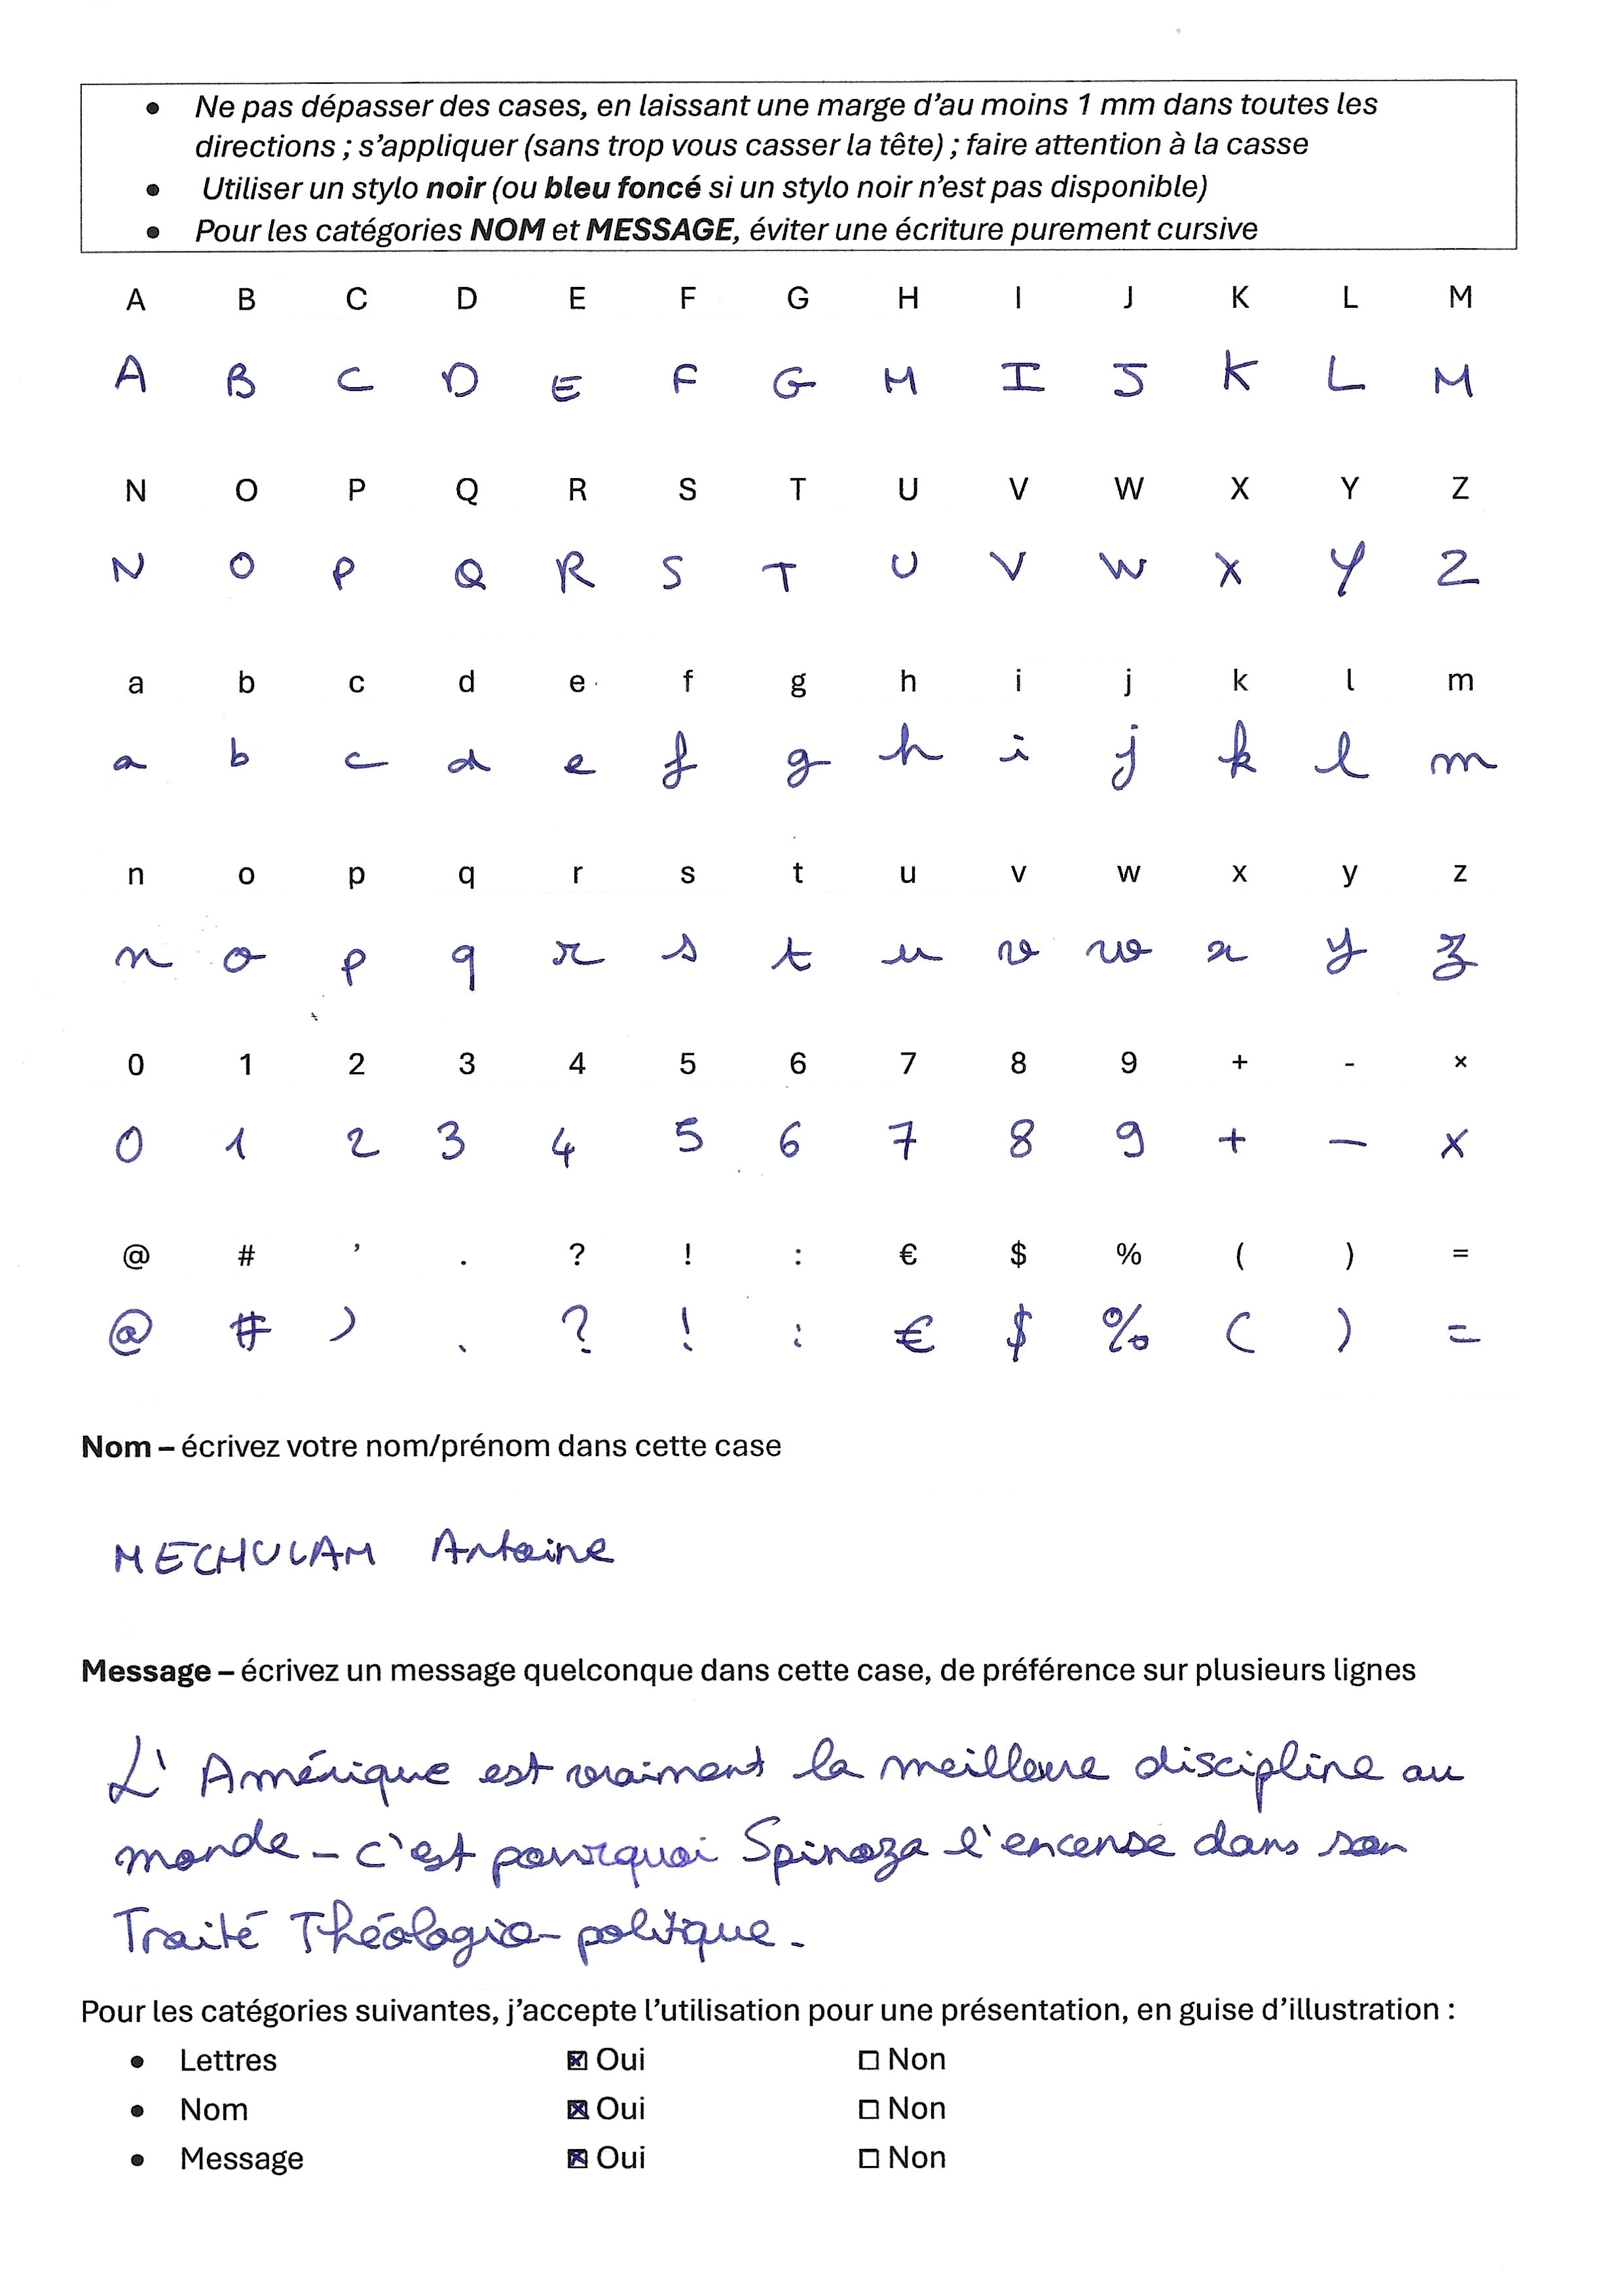 • Ne pas dépasser des cases, en laissant une marge d’au moins 1 mm dans toutes les
directions ; s’appliquer (sans trop vous casser la tête) ; faire attention à la casse
• Utiliser un stylo noir (ou bleu foncé si un stylo noir n’est pas disponible)
• Pour les catégories NOM et MESSAGE, éviter une écriture purement cursive
A B C D E F G H I J K L M
A B C D E F G H I J K L M
N O P Q R S T U V W X Y Z
N O P Q R S T U V W X Y Z
a b c d e f g h i j k l m
a b c d e f g h i j k l m
n o p q r s t u v w x y z
n o p q r s t u v w x y z
0 1 2 3 4 5 6 7 8 9 + - ×
0 1 2 3 4 5 6 7 8 9 + - ×
@ # ’ . ? ! : € $ % ( ) =
@ # ’ . ? ! : € $ % ( ) =
Nom – écrivez votre nom/prénom dans cette case
MECHULAM Antoine
Message – écrivez un message quelconque dans cette case, de préférence sur plusieurs lignes
L' Amérique est vraiment la meilleure discipline au
monde - c'est pourquoi Spinoza l'encense dans son
Traité Théologico-politique.
Pour les catégories suivantes, j’accepte l’utilisation pour une présentation, en guise d’illustration :
• Lettres ☒ Oui ☐ Non
• Nom ☒ Oui ☐ Non
• Message ☒ Oui ☐ Non